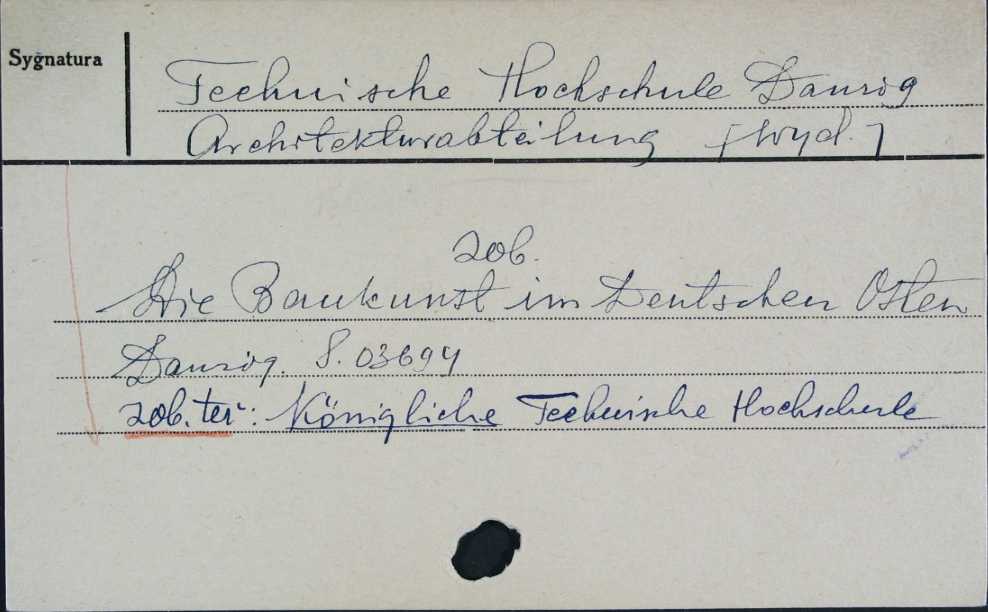 Sygnatura
Technische Hochschule Danzig
Architekturabteilung [Wyd.]
zob.
Die Baukunst im Deutschen Osten
Danzig. S. 03694
zob. też: Königliche Technische Hochschule